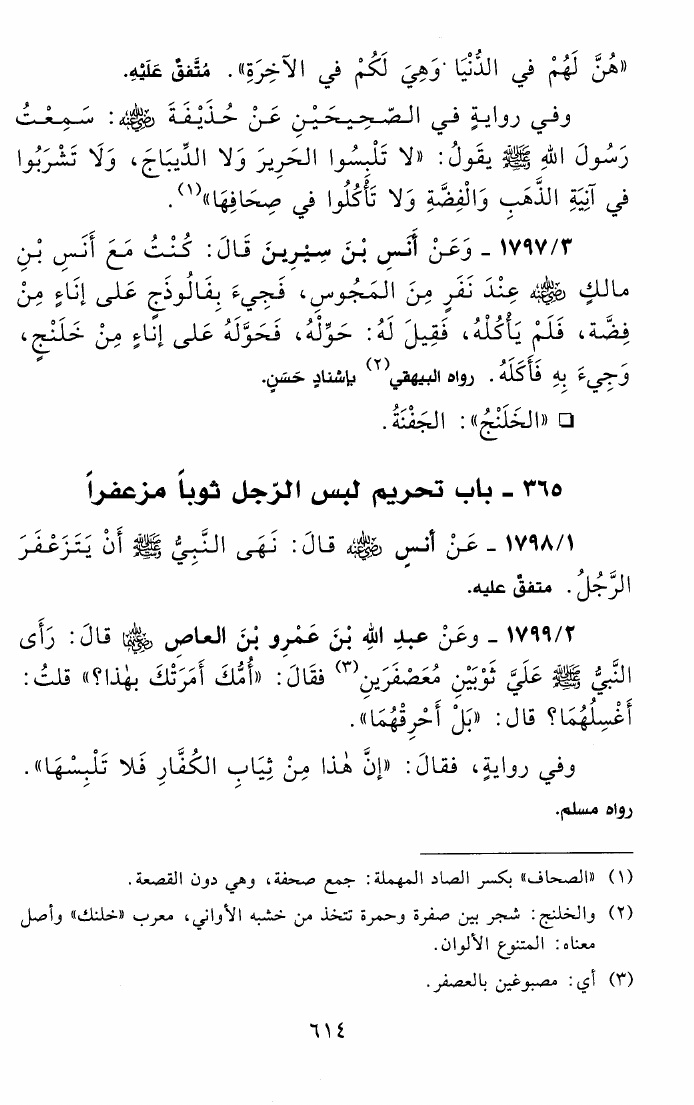 «هُنَّ لَهُمْ في الدُّنْيَا وَهِيَ لَكُمْ في الآخِرَةِ». مُتَّفقٌ عَلَيْهِ.
وفـي روايـةٍ فـي الـصّـحِـيـحَـيْـنِ عَـنْ حُـذَيْـفَـةَ ﵁: سَـمِـعْـتُ
رَسُولَ اللهِ ﷺ يقولُ: «لا تَلْبِسُوا الحَرِيرَ وَلا الدِّيبَاجَ، وَلَا تَشْرَبُوا
في آنِيَةِ الذَّهَبِ وَالْفِضَّةِ وَلا تَأْكُلُوا في صِحَافِهَا»(١).
١٧٩٧/٣ ـ وَعَنْ أَنَسِ بْنَ سِيْرِينَ قَالَ: كُنْتُ مَعَ أَنَسِ بْنِ
مالكٍ ﵁ عِنْدَ نَفَرٍ مِنَ المَجُوسِ، فَجِيءَ بِفَالُوذَجٍ عَلى إنَاءٍ مِنْ
فِضَّة، فَلَمْ يَأْكُلْهُ، فَقِيلَ لَهُ: حَوِّلْهُ، فَحَوَّلَهُ عَلى إنَاءٍ مِنْ خَلَنْجٍ،
وَجِيءَ بِهِ فَأَكَلَهُ. رواه البيهقي(٢) بإسْنادٍ حَسَنٍ.
❑ «الخَلَنْجُ»: الجَفْنَةُ.
٣٦٥ ـ باب تحريم لبس الرّجل ثوباً مزعفراً
١٧٩٨/١ ـ عَنْ أنسٍ ﵁ قالَ: نَهَى النَّبِيُّ ﷺ أَنْ يَتَزَعْفَرَ
الرَّجُلُ. متفقٌ عليه.
١٧٩٩/٢ ـ وعَنْ عبدِ اللهِ بْنَ عَمْرِو بْنَ العاصِ ﵄ قالَ: رَأَى
النَّبيُّ ﷺ عَلَيَّ ثَوْبَيْنِ مُعَصْفَرَينِ(٣) فقَالَ: «أُمُّكَ أَمَرَتْكَ بهٰذا؟» قلتُ:
أَغْسِلُهُمَا؟ قال: «بَلْ أَحْرِقْهُمَا».
وفي روايةٍ، فقالَ: «إنَّ هٰذا مِنْ ثِيَابِ الكُفَّارِ فَلا تَلْبِسْهَا».
رواه مسلم.
(١) «الصحاف» بكسر الصاد المهملة: جمع صحفة، وهي دون القصعة.
(٢) والخلنج: شجر بين صفرة وحمرة تتخذ من خشبه الأواني، معرب «خلنك» وأصل
معناه: المتنوع الألوان.
(٣) أي: مصبوغين بالعصفر.
٦١٤